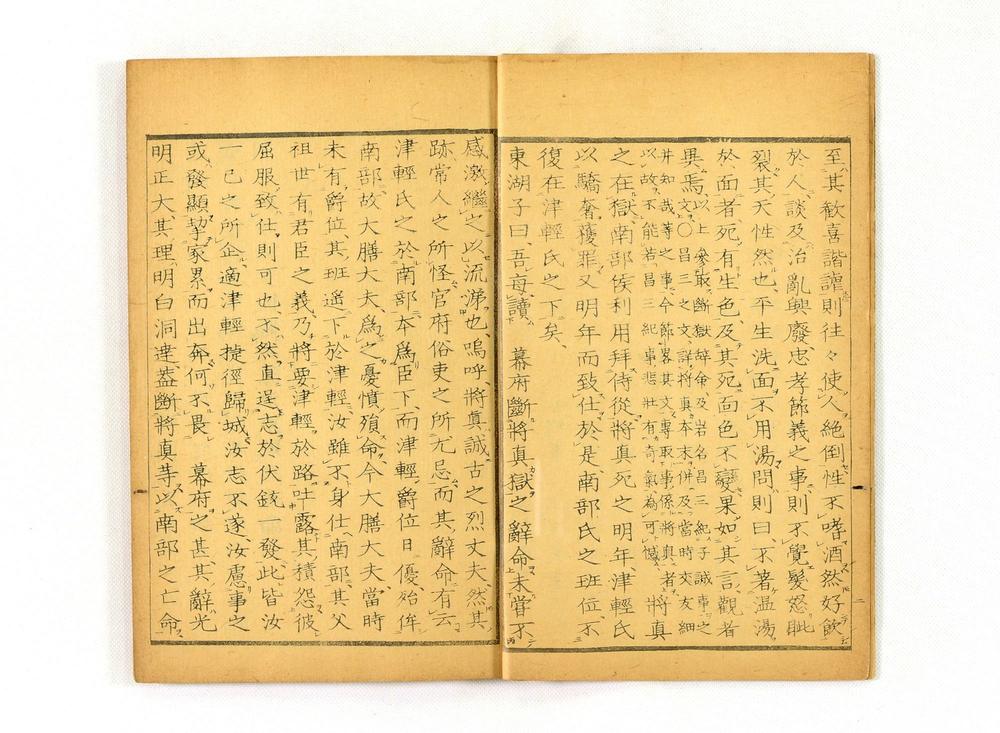 至其歓喜諧謔則往々使人絶倒性不嗜酒然好飲
於人談及治亂興廢忠孝節義之事則不覺髪怒眦
裂其天性然也平生洗面不用湯問則曰不著温湯
於面者死有生色及其死面色不變果如其言觀者
異焉以上参取断獄辞命及岩名昌三紀子誠事之
文〇昌三之文詳将真本末併及當時交友細
井知哉等之事今節畧其文専取事係将真者
以故不能若昌三紀事悲壮有奇氣為可憾将真
之在獄南部侯利用拜侍從将真死之明年津輕氏
以驕奢獲罪又明年而致仕於是南部氏之班位不
復在津輕氏之下矣
東湖子曰吾毎讀 幕府斷将真獄之辭命未嘗不
感激繼之以流涕也嗚呼将真誠古之烈丈夫然其
跡常人之所怪官府俗吏之所尤忌而其辭命有云
津輕氏之於南部本為臣下而津輕爵位日優殆侔
南部故大膳大夫為之憂憤殞命今大膳大夫當時
未有爵位其班遥下於津輕汝雖不身仕南部其父
祖世有君臣之義乃将要津輕於路吐露其積怨彼
屈服致仕則可也不然直逞志於伏銃一發此皆汝
一己之所企適津輕捷徑歸城汝志不遂汝慮事之
或發顯挈家累而出奔何不畏 幕府之甚其辭光
明正大其理明白洞達蓋斷将真等以南部之亡命